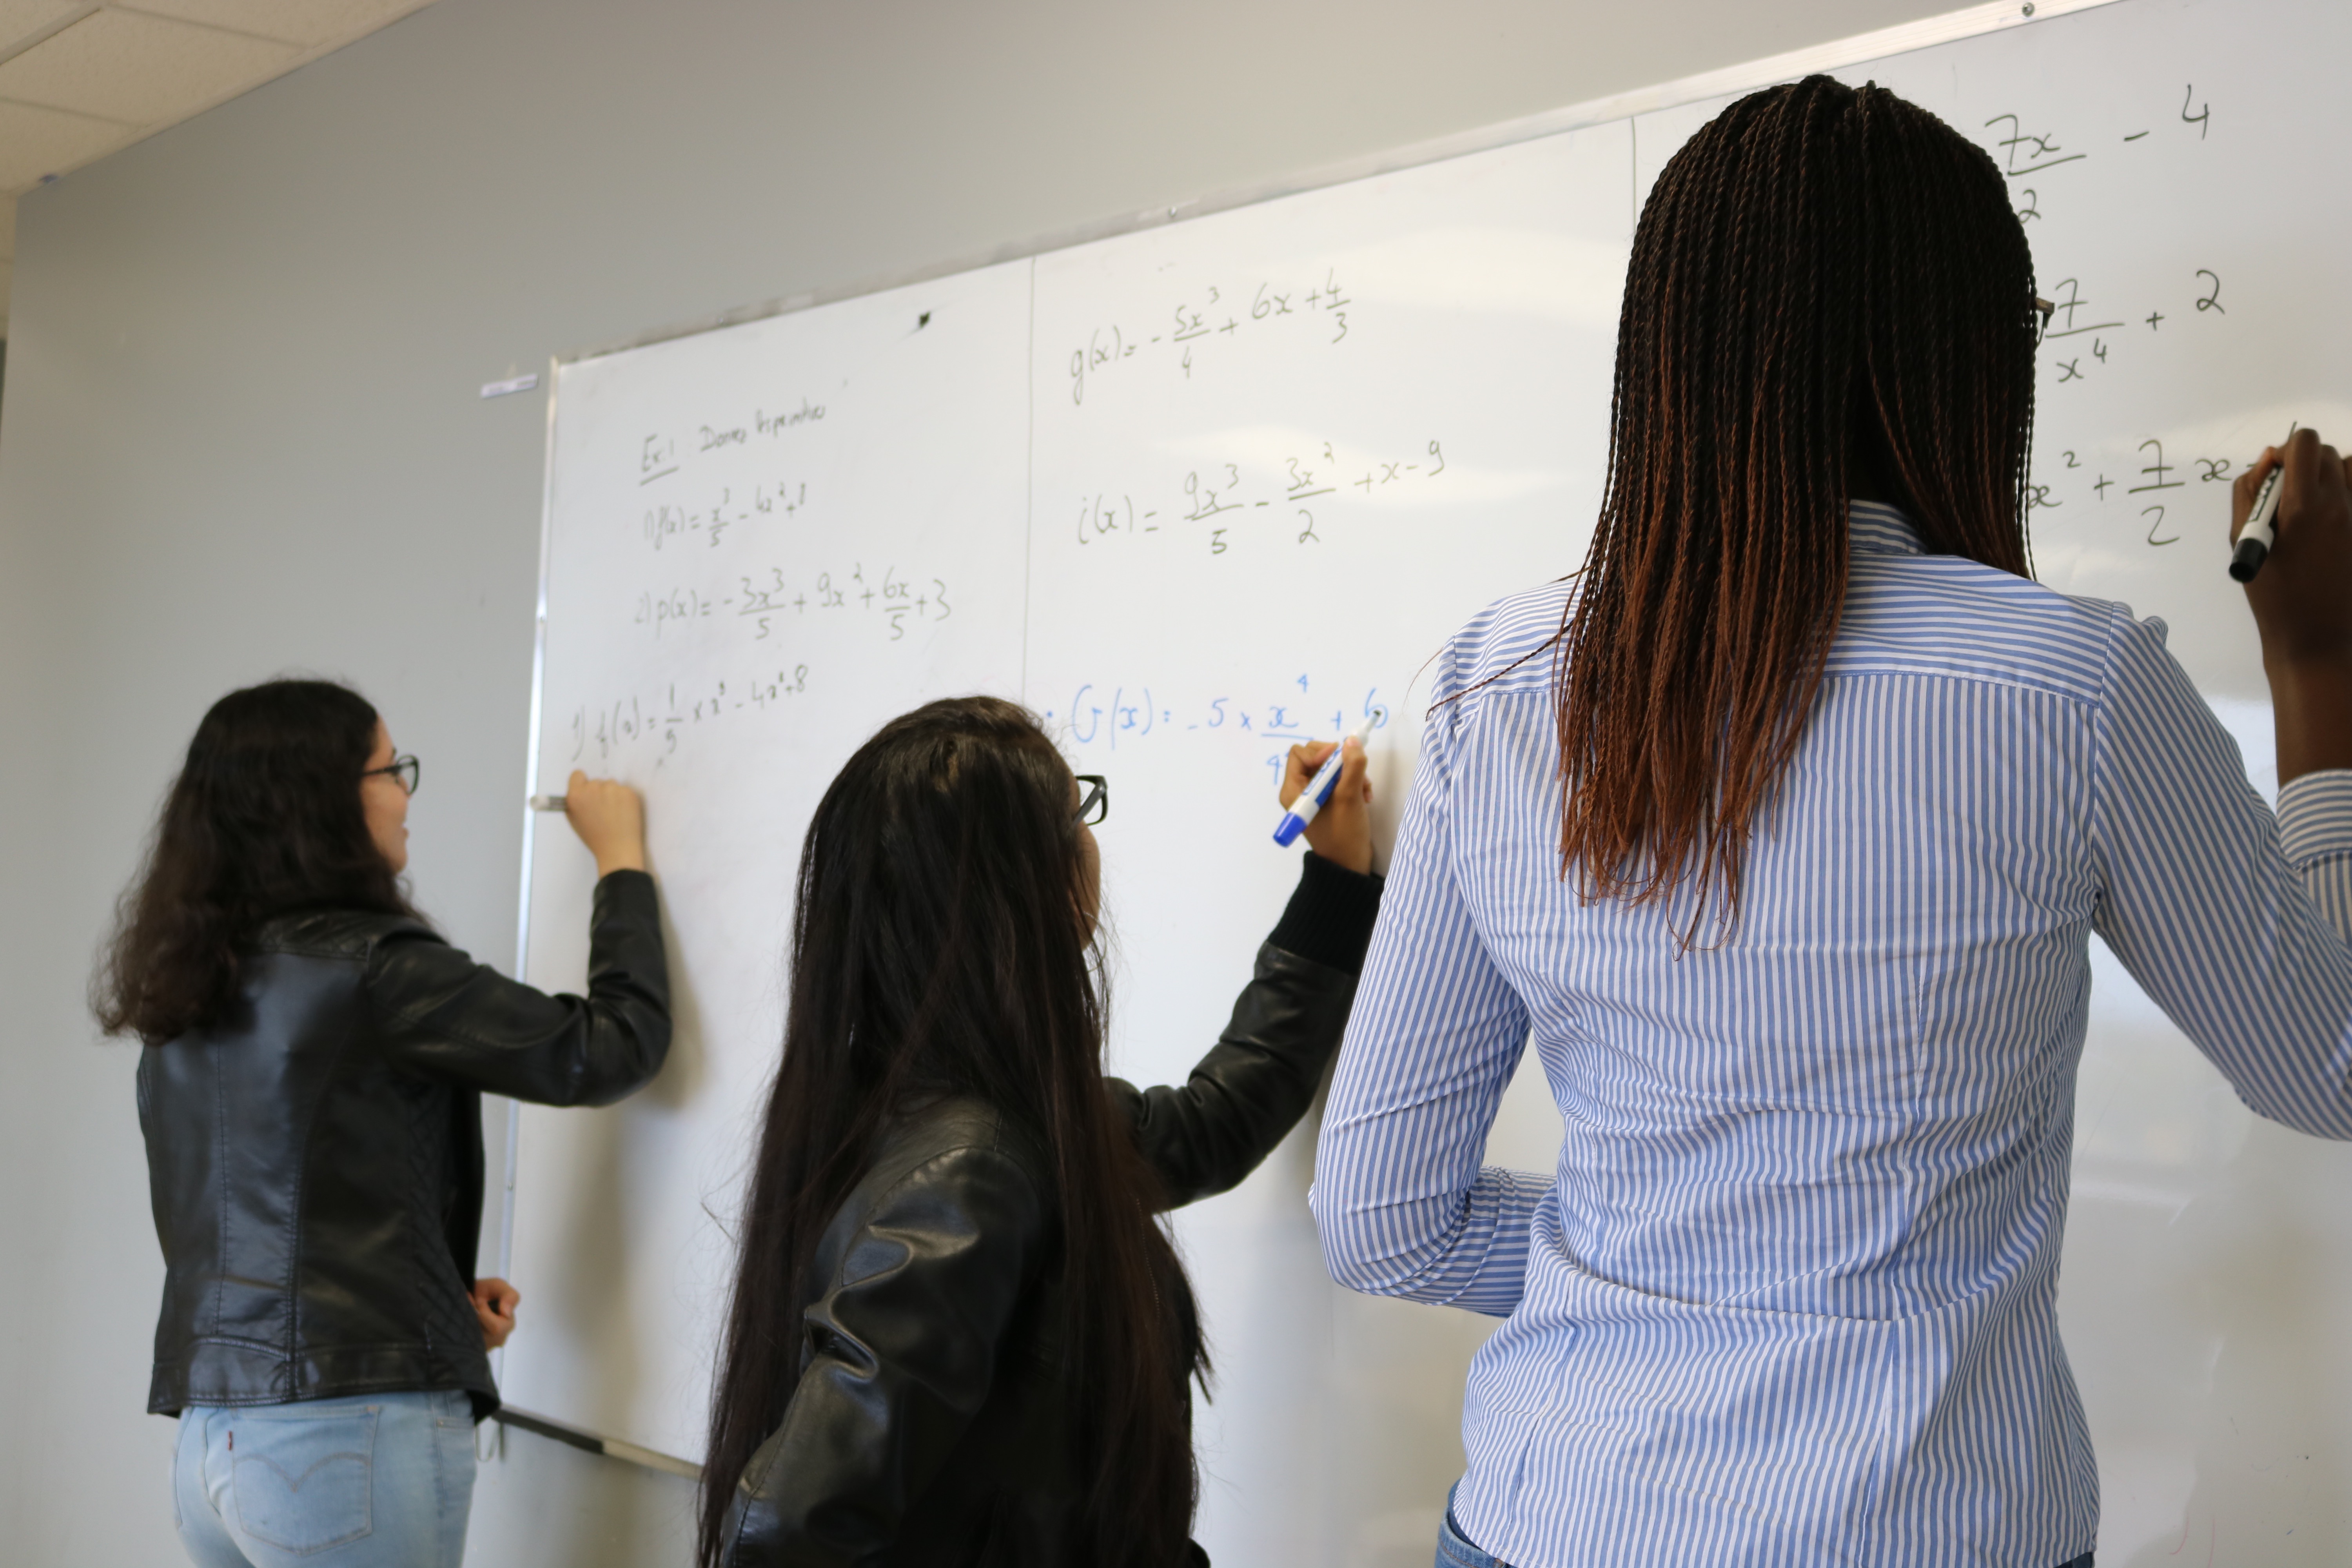 Ex:1 Donner les primitives
1) f(x) = x³/5 - 4x² + 8
2) p(x) = - 3x³/5 + 9x² + 6x/5 + 3
1) f(x) = 1/5 × x³ - 4x² + 8
g(x) = - 5x³/4 + 6x + 4/3
i(x) = 9x³/5 - 3x²/2 + x - 9
G(x) = - 5 × x⁴/4 + 6
7x/2 - 4
7/x⁴ + 2
x² + 7/2 x